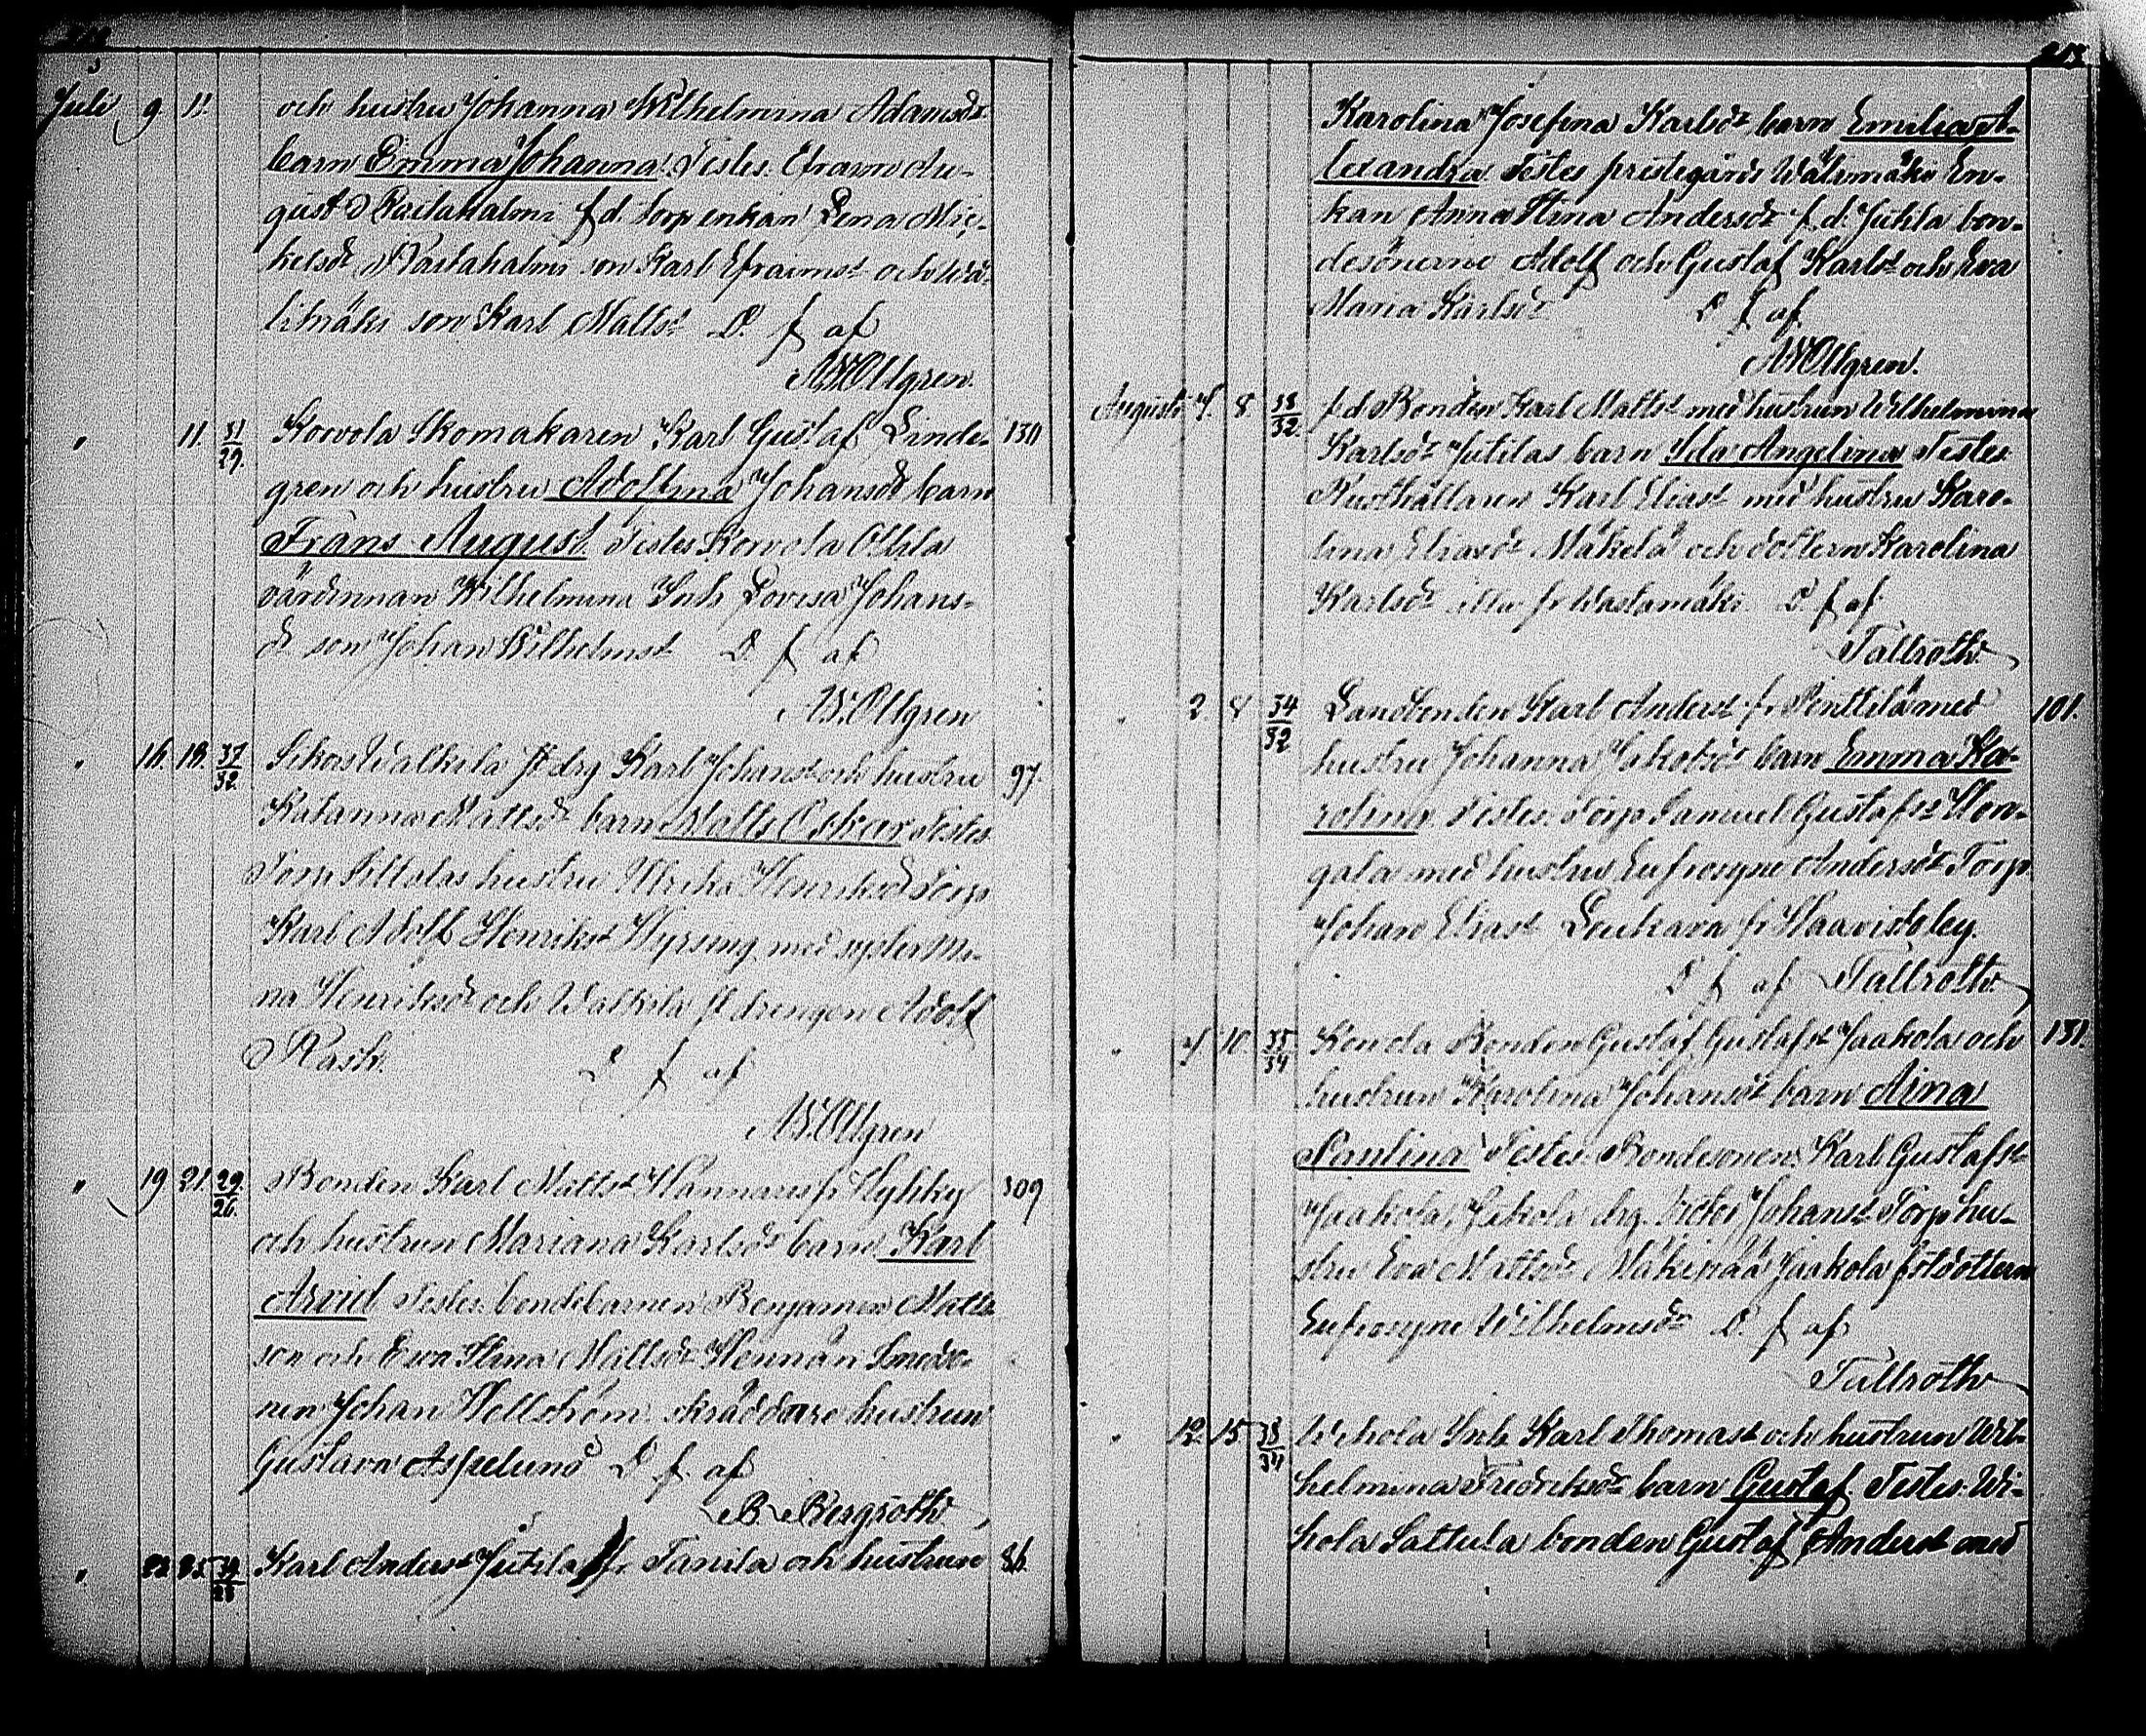 213
Juli 9. 11. och hustru Johanna Wilhelmina Adamsdr
barn Emma Johanna. Testes: Efraim Au-
gust Raitahalmi f.d. torp enkan Lena Mic-
kelsdr Raitahalmi son Karl Efraimsn och Wä-
limäki son Karl Mattsn D. f. af
A.W. Ollgren.
" 11. 31/29. Koovola Skomakaren Karl Gustaf Linde- 130
gren och hustru Adolfina Johansdr barn
Frans August. Testes Koovola Ollila
värdinnan Wilhelmina Inh. Lovisa Johans-
dr son Johan Wilhelmsn D. f. af
A.W. Ollgren
" 16. 18. 37/32. Walkila drg Karl Johansn och hustru 97.
Katarina Mattsdr barn Matts Oskar Testes
hustru Ulrika Henriksdr Torp
Karl Adolf Henriksn Hyrsing med syster Mi-
na Henriksdr och Walkila drengen Adolf
Rask. D f af
A.W. Ollgren
" 19 21. 29/26. Bonden Karl Mattsn Hannares fr. Hyhky 309
och hustrun Mariana Karlsdr barn Karl
Arvid Testes: bondebarnen Benjamin Matts-
son och Eva Stina Mattsdr Smeds-
nen Johan Hellström. skräddare hustrun
Gustava Aspelund D. f. af
B. Bergroth
" 22. 25. Karl Andersn Jutila fr. Tanila och hustrun 86.
Karolina Josefina Karlsdr barn Emilia A-
lexandra Testes prestegårds Wälimäki En-
kan Anna Stina Andersdr f.d. Juhla bon-
desönerne Adolf och Gustaf Karlsn och Eva
Maria Karlsdr D f af
A.W. Ollgren.
Augusti 4. 8 38/32. f.d. Bonden Karl Mattsn med hustrun Wilhelmina
Karlsdr Jutilas barn Ida Angelina Testes
Rusthållaren Karl Eliasn med hustru Karo-
lina Eliasdr Mäkelä och dottern Karolina
Karlsdr fr Wastamäki D. f af
Tallroth.
" 2. 8 34/32 Landbonden Karl Andersn fr. Penttilä med 101.
hustru Johanna Jakobsdr barn Emma Ka-
rolina. Testes: Torp Samuel Gustafsn Hon-
gala med hustru Eufrosyne Andersdr Torp
Johan Eliasn Leukava fr Haavisto by.
D f af Tallroth.
" 4 10. 35/34 Bonden Gustaf Gustafsn Jaakola och 131.
hustrun Karolina Johansdr barn Aina
Paulina Testes: Bondesonen Karl Gustafsn
Jaakola, drg. Victor Johansn Torp hu-
stru Eva Mattsdr Mäkipää Jaakola dottern
Eufrosyne Wilhelmsdr D. f af
Tallroth
" 12. 15 38/34 Wihola Inh. Karl Thomasn och hustrun Wil-
helmina Fredriksdr barn Gustaf. Testes: Wi-
hola Sattula bonden Gustaf Andersn med